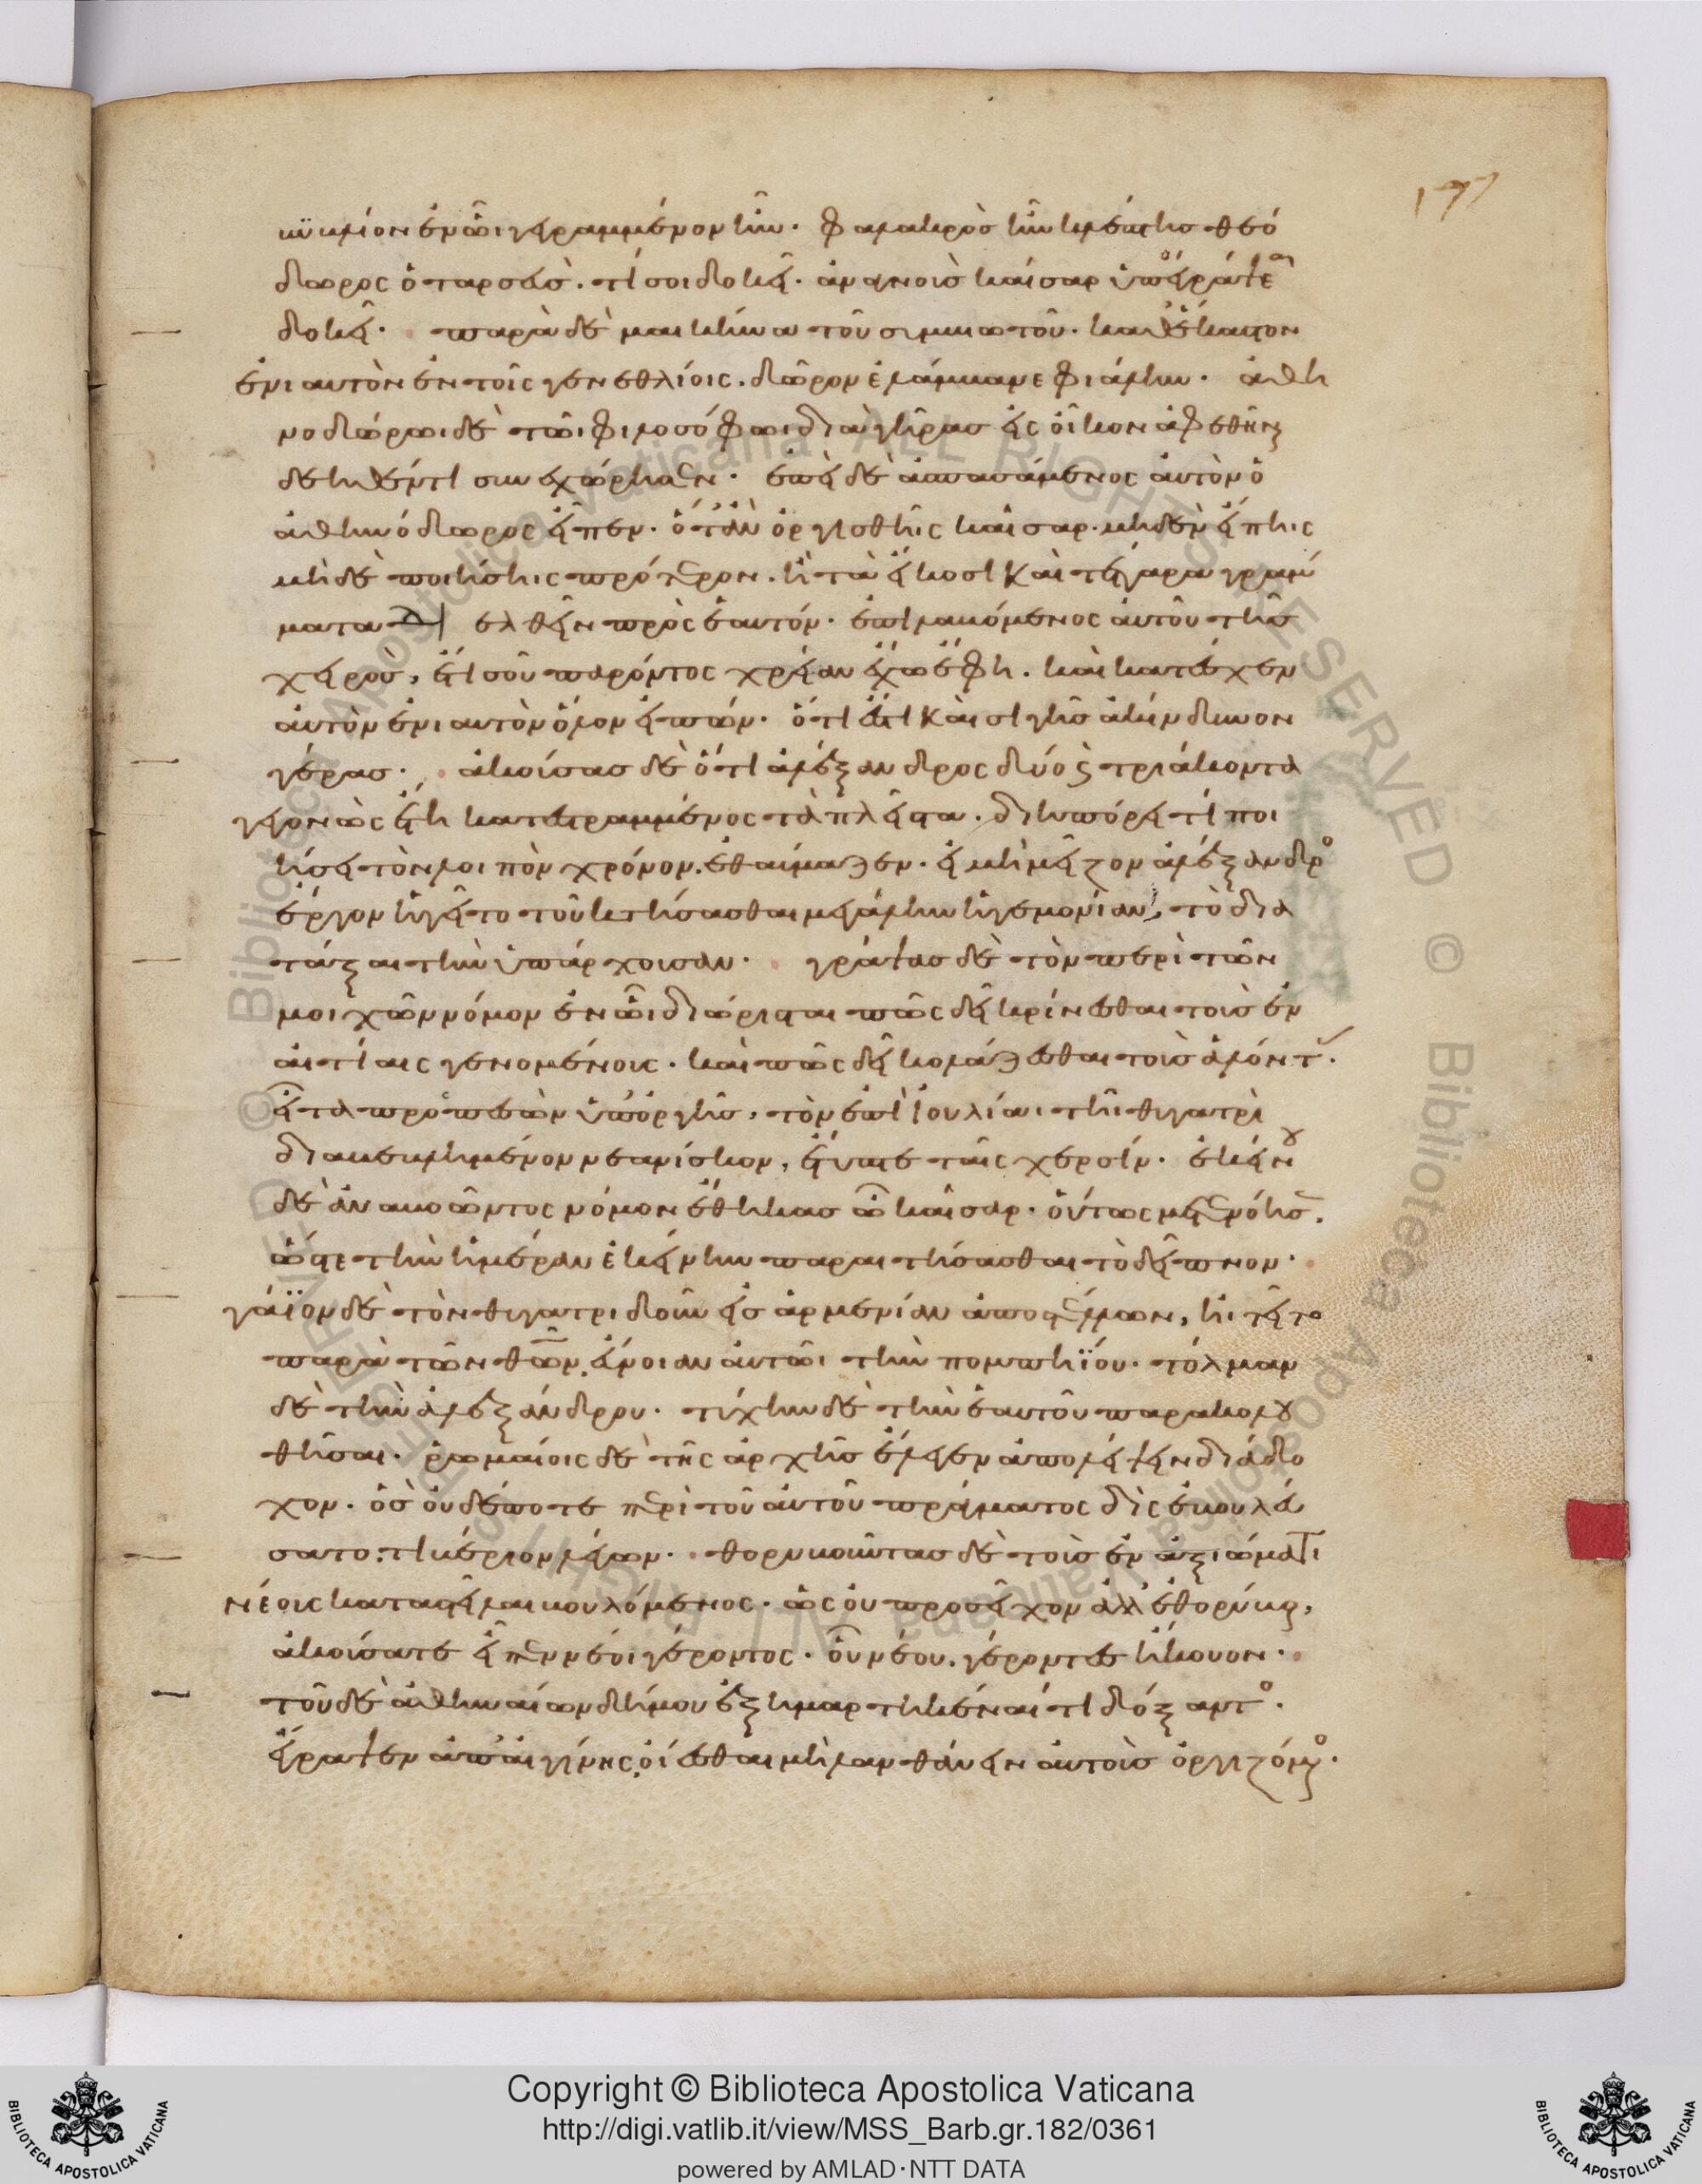 177
ϋβλίον ἐν ὧι γεγραμμένον ἦν. φαλακρὸσ ἦν κλέπτης θεό
δωρος ὁ ταρσεύσ. τί σοι δοκεῖ. ἀναγνοὺσ καῖσαρ ὑπέγραψεν
δοκεῖ. παρὰ δὲ μαικήνα τοῦ συμβιωτοῦ. καθ ἕκαστον
ἐνιαυτὸν ἐν τοῖς γενεθλίοις. δῶρον ἐλάμβανε φιάλην. ἀθη
νοδώρωι δὲ τῶι φιλοσόφωι διὰ γῆρασ εἰς οἶκον ἀφεθῆναι
δεηθέντι συνεχώρησεν. ἐπεὶ δὲ ἀσπασάμενος αὐτὸν ὁ
ἀθηνόδωρος εἶπεν. ὅταν ὀργισθῆις καῖσαρ. μηδὲν εἴπηις
μὴδὲ ποιήσηις πρότερον. ἢ τὰ εἴκοσι καὶ τέσσαρα γράμ
ματα διελθεῖν πρὸς ἑαυτόν. ἐπιλαβόμενος αὐτοῦ τῆσ
χειρὸσ, ἔτι σοῦ παρόντος χρείαν ἔχω ἔφη. καὶ κατέσχεν
αὐτὸν ἐνιαυτὸν ὅλον εἰπών. ὅτι ἔστι καὶ σιγῆσ ἀκίνδυνον
γέρας. ἀκούσας δὲ ὅτι ἀλέξανδρος δύο καὶ τριάκοντα
γεγονὼς ἔτη κατεστραμμένος τὰ πλεῖστα. διηπόρει τί ποι
ήσει τὸν λοιπὸν χρόνον. ἐθαύμαζεν. εἰ μὴ μεῖζον ἀλέξανδρος
ἔργον ἡγεῖτο τοῦ κτήσασθαι μεγάλην ἡγεμονίαν, τὸ δια
τάξαι τὴν ὑπάρχουσαν. γράψας δὲ τὸν περὶ τῶν
μοιχῶν νόμον ἐν ὧι διώρισται πῶς δεῖ κρίνεσθαι τοὺσ ἐν
αἰτίαις γενομένους. καὶ πῶς δεῖ κολάζεσθαι τοὺσ ἁλόντας.
εἶτα προσπεσὼν ὑπὸ ὀργῆσ, τὸν ἐπὶ ἰουλίαι τῆι θυγατρὶ
διαβεβλημένον νεανίσκον, ἔτυπτε ταῖς χερσίν. ἐκείνου
δὲ ἀναβοῶντος νόμον ἔθηκας ὦ καῖσαρ. οὕτως μετενόησε.
ὥστε τὴν ἡμέραν ἐκείνην παραιτήσασθαι τὸ δεῖπνον.
γάϊον δὲ τὸν θυγατριδοῦν εἰσ ἀρμενίαν ἀποστέλλων, ἠιτεῖτο
παρὰ τῶν θεῶν, εὔνοιαν αὐτῶι τὴν πομπηϊου. τόλμαν
δὲ τὴν ἀλεξάνδρου. τύχην δὲ τὴν ἑαυτοῦ παρακολου
θῆσαι. ῥωμαίοις δὲ τῆς ἀρχῆσ ἔλεγεν ἀπολείψειν διάδο
χον. ὃσ οὐδέποτε περὶ τοῦ αὐτοῦ πράγματος δὶς ἐβουλεύ
σατο. τιβέριον λέγων. θορυβοῦντας δὲ τοὺσ ἐν ἀξιώματι
νέους καταστεῖλαι βουλόμενος. ὡς οὐ προσεῖχον ἀλλ ἐθορύβουν,
ἀκούσατε εἶπεν νέοι γέροντος. οὗ νέου. γέροντες ἤκουον.
τοῦ δὲ ἀθηναίων δήμου ἐξημαρτηκέναι τι δόξαντος.
ἔγραψεν ἀπ αἰγίνης, οἴεσθαι μὴ λανθάνειν αὐτοὺσ ὀργιζόμενος.
Copyright © Biblioteca Apostolica Vaticana
http://digi.vatlib.it/view/MSS_Barb.gr.182/0361
powered by AMLAD·NTT DATA
BIBLIOTECA APOSTOLICA VATICANA
BIBLIOTECA APOSTOLICA VATICANA